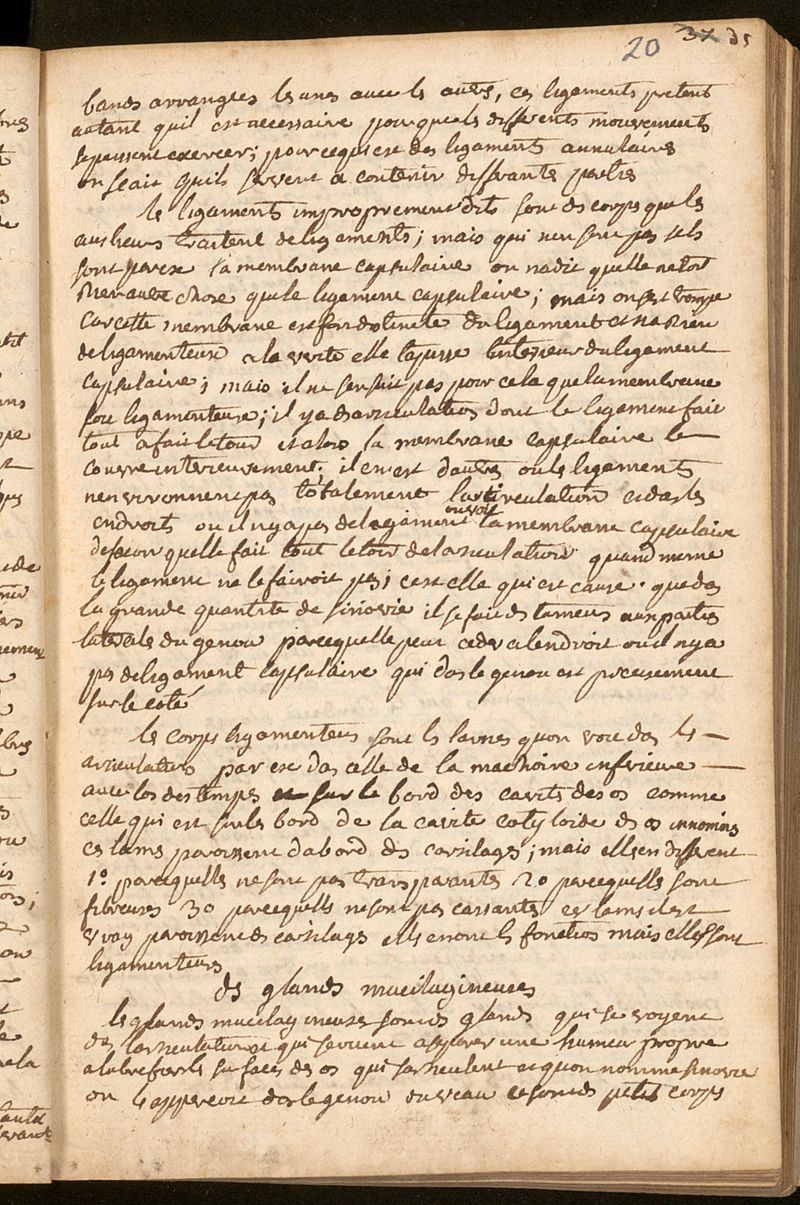 20 37 35
bands arrangees les unes avec les autres, ces ligaments pretent
autant quil est necessaire pour que les differents mouvements
se puissent exercer; pour ce qui est des ligaments annulaires
on scait quils servent a contenir differantes parties
les ligaments improprement dits sont des corps que les
autheurs traitent de ligaments; mais qui nen sont pas tels
sont par ex la membrane capsulaire on na dit quelle netoit
rien autre chose que le ligament capsulaire; mais on sest trompe
car cette membrane est fort distincte du ligament et na rien
de ligamenteux a la verite elle tapisse linterieur du ligament
capsulaire; mais il ne sensuit pas pour cela que la membrane
soit ligamenteuse; il y a des articulations dont le ligament fait
tout a fait le tour et alors la membrane capsulaire le
couvre interieurement; il en est dautres ou les ligaments
nenvironnent pas totalement larticulation et dans les
endroits ou il ny a pas de ligament on voit la membrane capsulaire
de facon quelle fait tout le tour de larticulation quand meme
le ligament ne le fairoit pas; cest elle qui est cause que dans
la grande quantite de sinovie il se fait des tumeurs aux parties
laterales du genou parcequelle peut ceder a lendroit ou il ny a
pas de ligament capsulaire qui dans le genou est precisement
sur le coté
les corps ligamenteux sont les lames quon voit dans les
articulations par ex dans celle de la machoire inferieure
avec los des temps sur le bord des cavités des os comme
celle qui est sur le bord de la cavite cotyloide des os innomines
ces lames paroissent dabord des cartilages; mais elles en different
1º parcequelles ne sont pas transparantes 20 parcequelles sont
fibreuses 30 parcequelles ne sont pas cassantes ces lames il est
vray paroissent des cartilages elles en ont les fonctions mais elles sont
ligamenteuses
des glandes mucilagineuses
les glandes mucilagineuses sont des glandes qui se voyent
dans larticulation et qui servent a separer une humeur propre
a labrefier les surfaces des os qui sarticulent et quon nomme sinovie
on les appercoit dans le genou du veau ce sont des petits corps